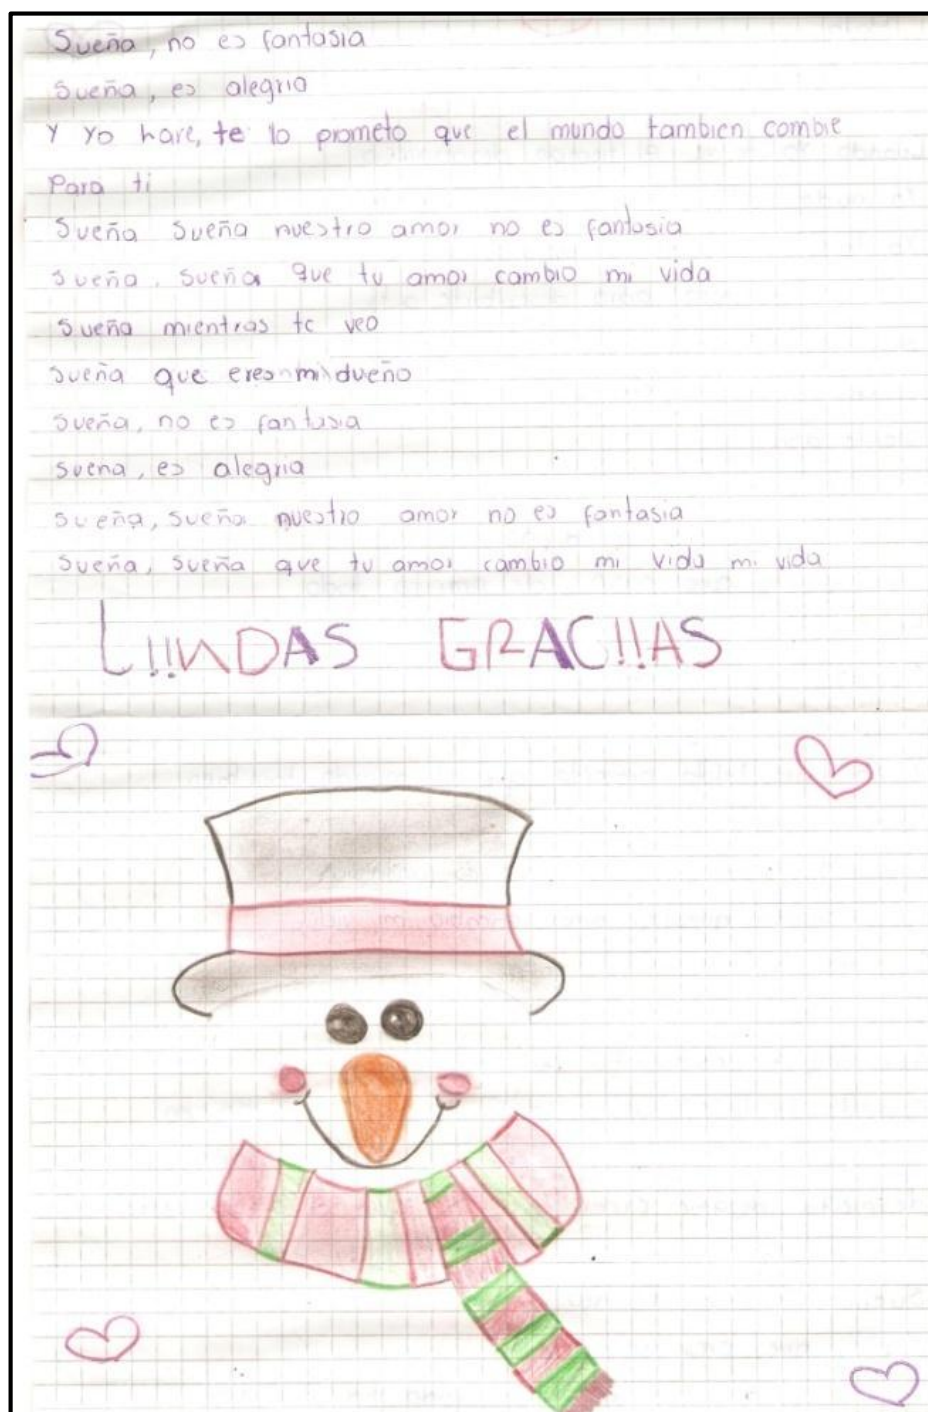 Sueña, no es fantasia
Sueña, es alegria
Y Yo hare, te lo prometo que el mundo tambien combie
Para ti
Sueña Sueña nuestro amor no es fantasia
Sueña, sueña que tu amor cambio mi vida
Sueña mientras te veo
Sueña que eres mi dueño
Sueña, no es fantasia
Suena, es alegria
Sueña, sueña nuestro amor no es fantasia
Sueña, sueña que tu amor cambio mi vida mi vida
L!!NDAS GRAC!!AS